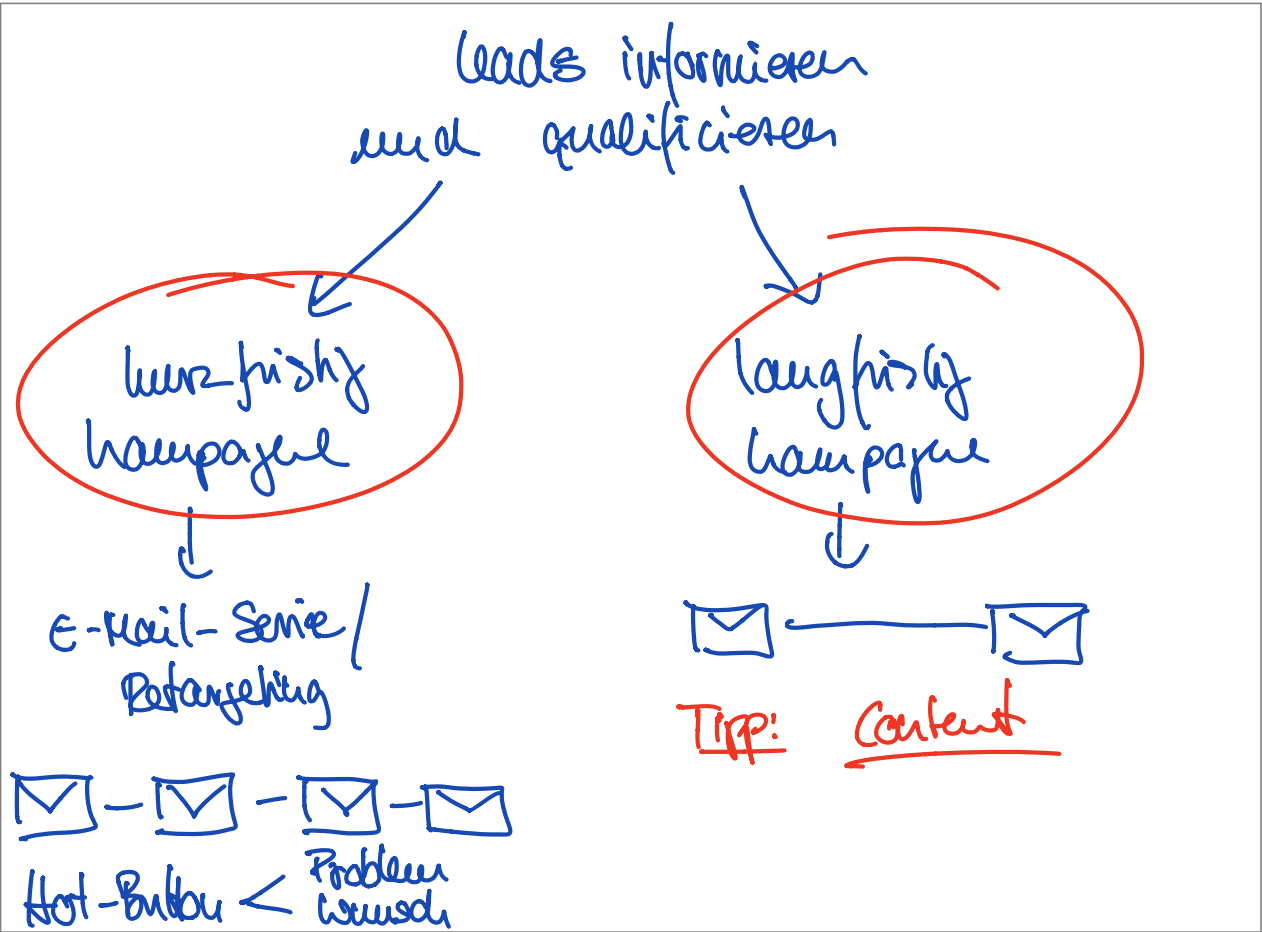 Leads informieren
und qualifizieren
kurz-fristig
Kampagne
langfristig
Kampagne
E-Mail-Serie/
Retargeting
Tipp: Content
Hot-Button < Problem
Wunsch